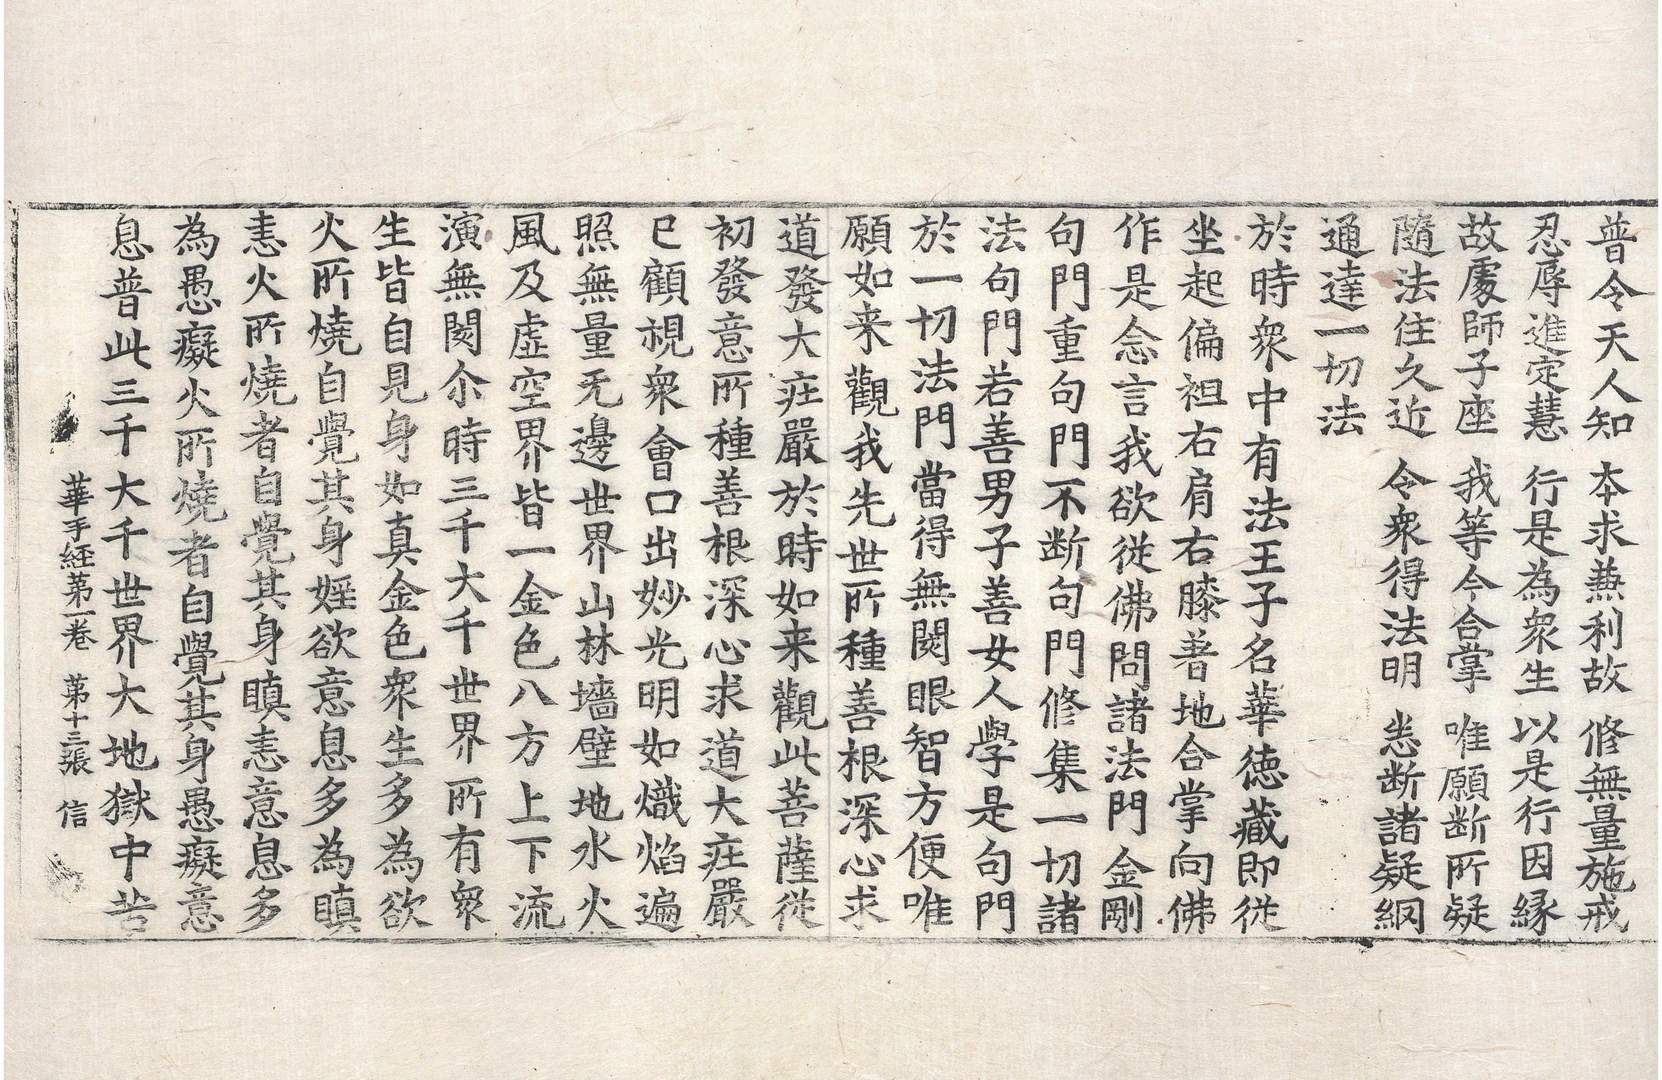 普令天人知　本求燕利故　修無量施戒
忍辱進定慧　行是為衆生　以是行因縁
故處師子座　我等今合掌　唯願断所疑
隨法住久近　令衆得法明　悉断諸疑網
通達一切法
於時衆中有法王子名華徳藏即従
坐起偏袒右肩右膝著地合掌向佛
作是念言我欲従佛問諸法門金剛
句門重句門不断句門修集一切諸
法句門若善男子善女人學是句門
於一切法門當得無閡眼智方便唯
願如来觀我先世所種善根深心求
道發大莊嚴於時如来觀此菩薩従
初發意所種善根深心求道大莊嚴
已顧視衆會口出妙光明如熾焰遍
照無量无邊世界山林墻壁地水火
風及虚空界皆一金色八方上下流
演無閡尒時三千大千世界所有衆
生皆自見身如真金色衆生多為欲
火所燒自覺其身婬欲意息多為瞋
恚火所燒者自覺其身瞋恚意息多
為愚癡火所燒者自覺其身愚癡意
息普此三千大千世界大地獄中苦
華手経第一卷　第十三張　信